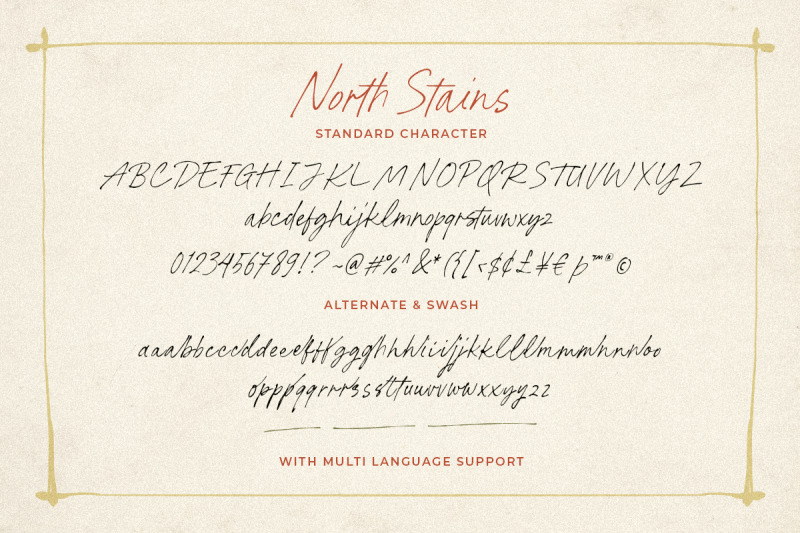 North Stains
STANDARD CHARACTER
ABCDEFGHIJKLMNOPQRSTUVWXYZ
abcdefghijklmnopqrstuvwxyz
0123456789!?~@#%^&*({[<$¢£¥€þ™®©
ALTERNATE & SWASH
aaabbcccddeeeefffggghhhiiijjjkklllmmmnnnoo
opppqqrrrrssstttuuvvwwxxyyzz
WITH MULTI LANGUAGE SUPPORT